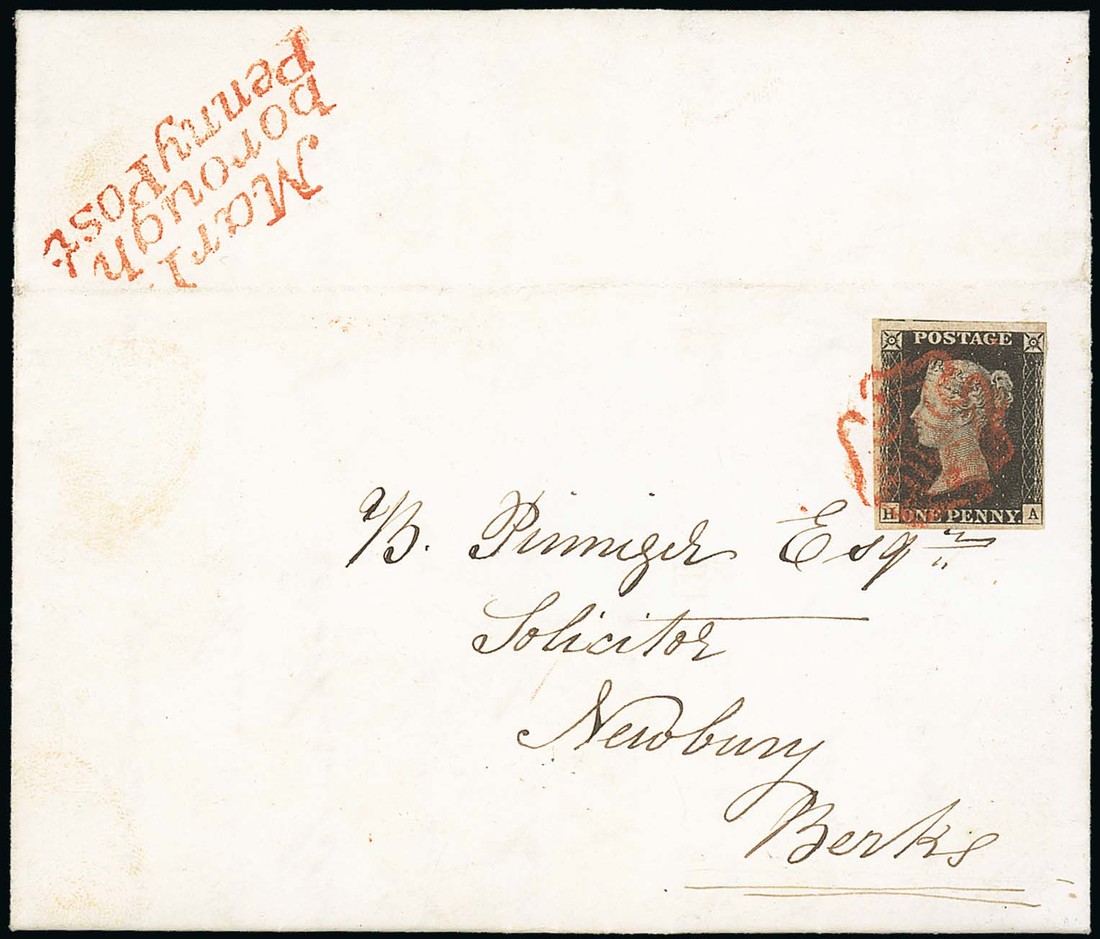 Marl
borough
Penny Post
POSTAGE
H ONE PENNY. A
B. Pinniger Esqr
Solicitor
Newbury
Berks